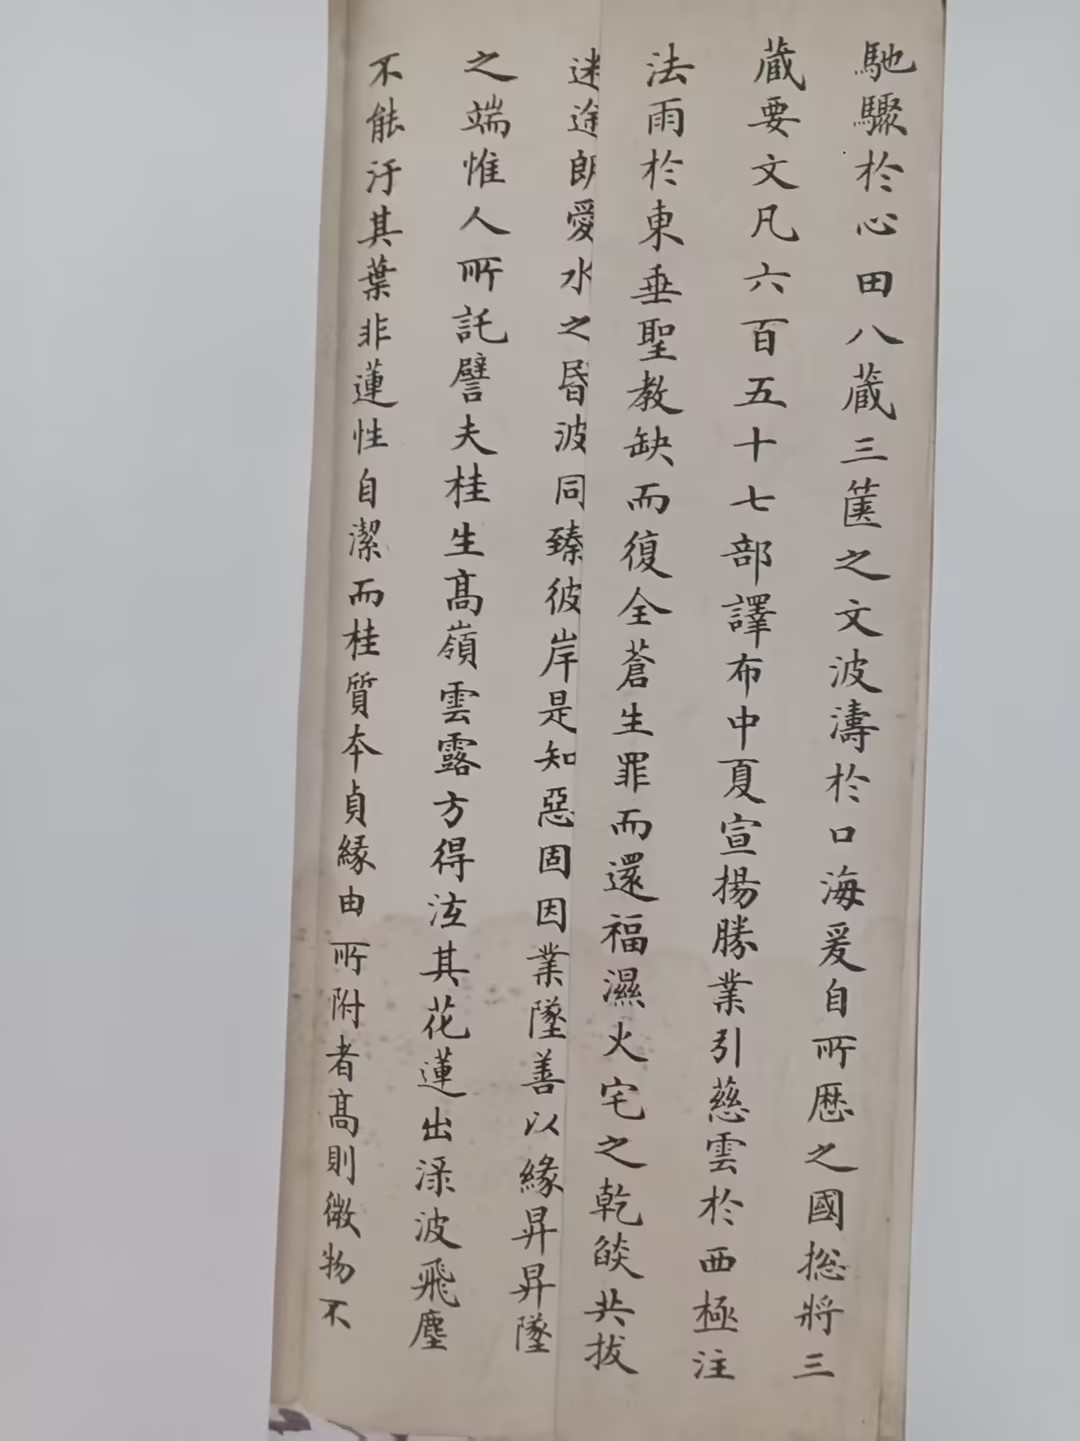 馳驟於心田八蔵三篋之文波濤於口海爰自所歴之國捴將三
蔵要文凡六百五十七部譯布中夏宣揚勝業引慈雲於西極注
法雨於東垂聖教缺而復全蒼生罪而還福濕火宅之乾燄共拔
迷途朗愛水之昬波同臻彼岸是知惡固因業墜善以緣昇昇墜
之端惟人所託譬夫桂生髙嶺雲露方得泫其花蓮出渌波飛塵
不能汙其葉非蓮性自潔而桂質本貞縁由所附者髙則微物不